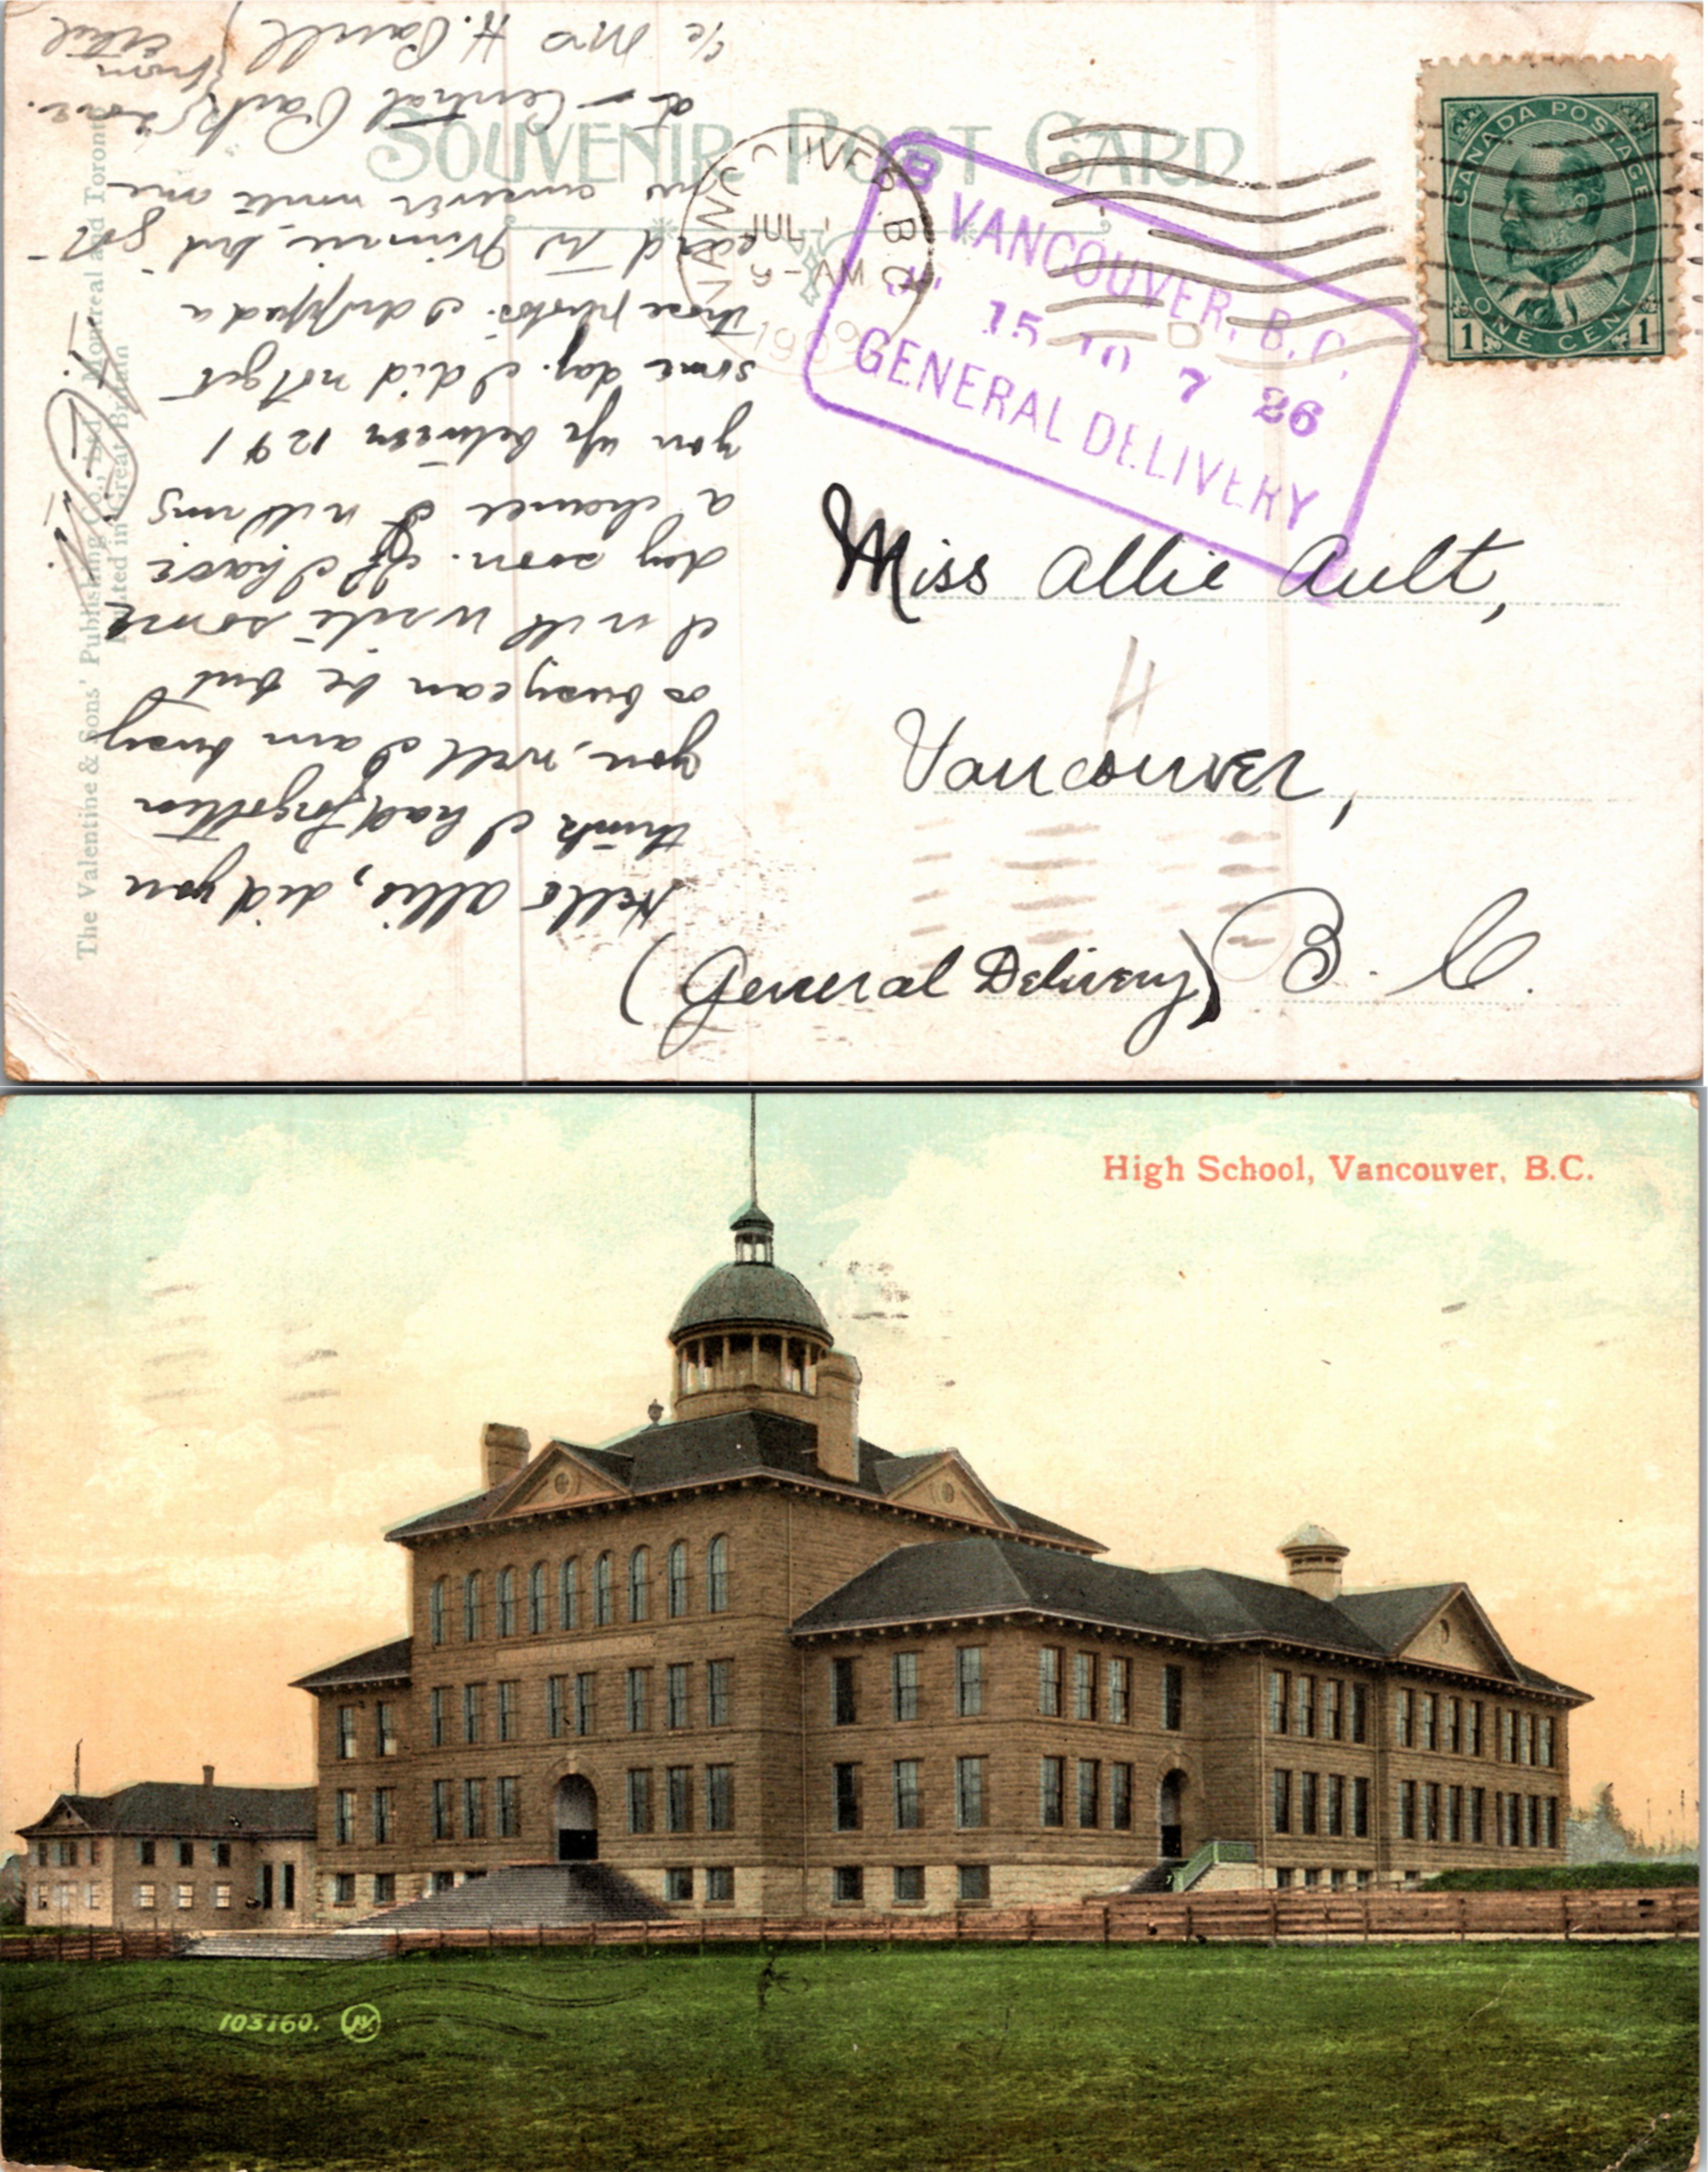 SOUVENIR POST CARD
CANADA POSTAGE
ONE CENT
1 1
VANCOUVER, B.C.
15 10 7 26
GENERAL DELIVERY
VANCOUVER B.C.
6 - AM
190
Miss Allie Ault,
H
Vancouver,
(General Delivery) B. C.
Hello Allie, did you
think I had forgotten
you, well I am busy
as busy can be but
I will write some
day soon. If I have
a chance I will ring
you up between 12 & 1
some day. I did not get
those photos. I dropped a
card to Minnie, but got
no answer write me
at Central Park
c/o Mrs H.
love
from
Ethel
The Valentine & Sons' Publishing Co., Ltd., Montreal and Toronto
Printed in Great Britain
High School, Vancouver, B.C.
103160. JV